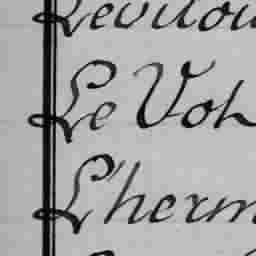 Levitou
Le Voh
L'herm